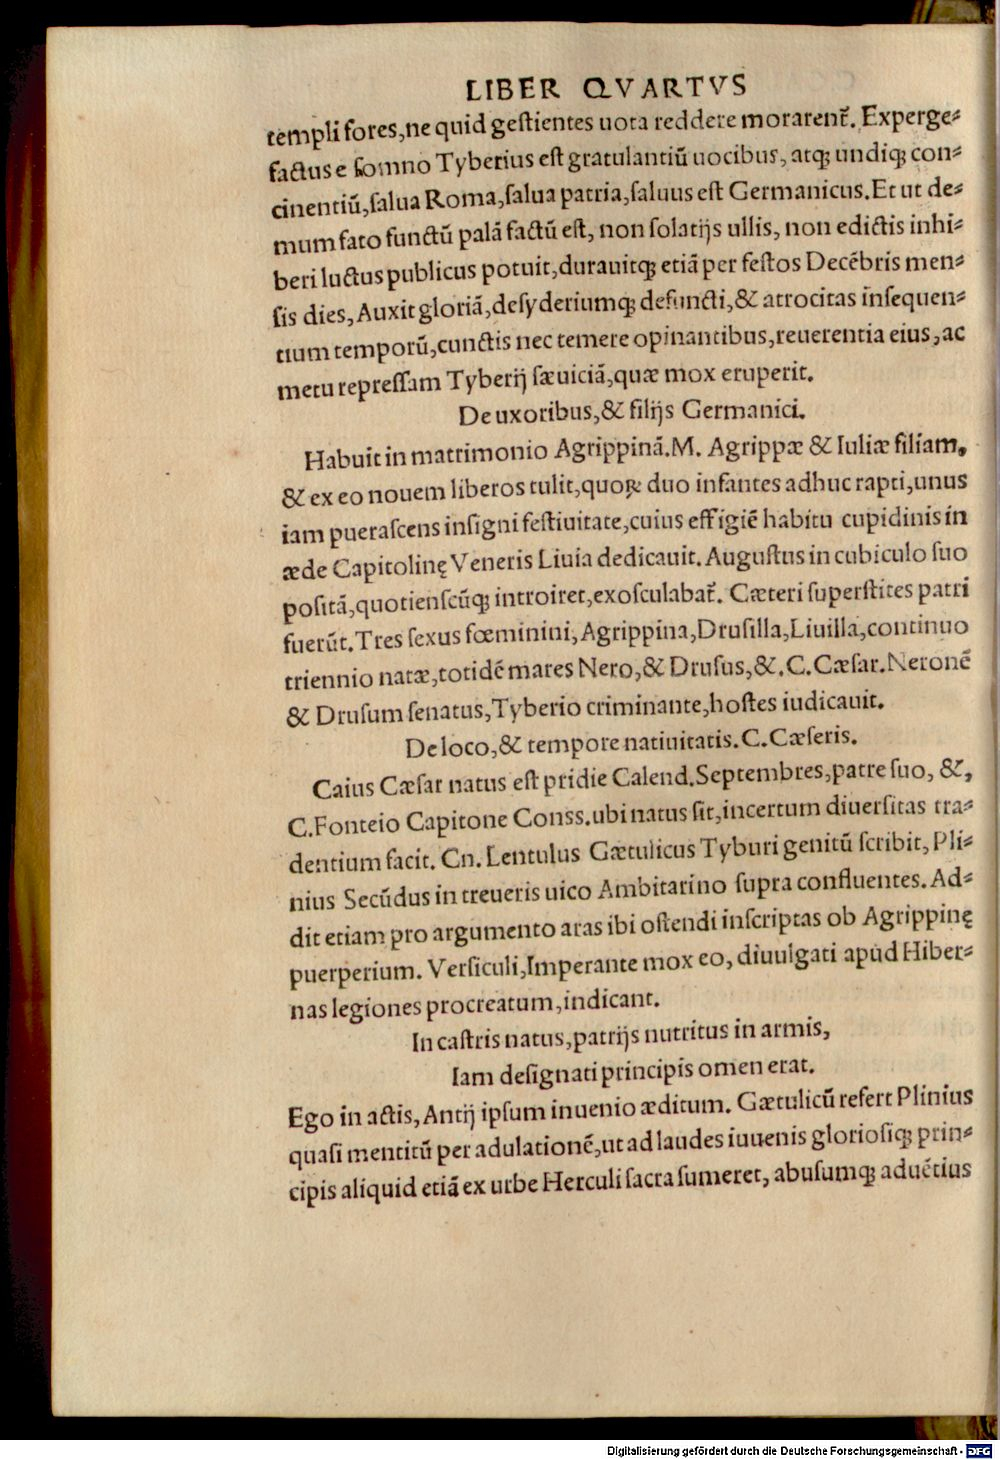 LIBER QVARTVS
templi fores,ne quid gestientes uota reddere morarent᷑. Experge⸗
factus e somno Tyberius est gratulantiũ uocibus, atq; undiq; con⸗
cinentiũ,salua Roma,salua patria,saluus est Germanicus.Et ut de⸗
mum fato functũ palã factũ est, non solatijs ullis, non edictis inhi⸗
beri luctus publicus potuit,durauitq; etiã per festos Decẽbris men⸗
sis dies, Auxit gloriã,desyderiumq; defuncti,& atrocitas insequen⸗
tium temporũ,cunctis nec temere opinantibus,reuerentia eius,ac
metu repressam Tyberij sæuiciã,quæ mox eruperit.
De uxoribus,& filijs Germanici.
Habuit in matrimonio Agrippinã.M. Agrippæ & Iuliæ filiam,
& ex eo nouem liberos tulit,quoꝝ duo infantes adhuc rapti,unus
iam puerascens insigni festiuitate,cuius effigiẽ habitu cupidinis in
æde Capitolinę Veneris Liuia dedicauit. Augustus in cubiculo suo
positã,quotienscũq; introiret,exosculabat᷑. Cæteri superstites patri
fuerũt.Tres sexus fœminini, Agrippina,Drusilla,Liuilla,continuo
triennio natæ,totidẽ mares Nero,& Drusus,&.C.Cæsar.Neronẽ
& Drusum senatus,Tyberio criminante,hostes iudicauit.
De loco,& tempore natiuitatis.C.Cæseris.
Caius Cæsar natus est pridie Calend.Septembres,patre suo, &,
C.Fonteio Capitone Conss.ubi natus sit,incertum diuersitas tra⸗
dentium facit. Cn. Lentulus Gætulicus Tyburi genitũ scribit, Pli⸗
nius Secũdus in treueris uico Ambitarino supra confluentes. Ad⸗
dit etiam pro argumento aras ibi ostendi inscriptas ob Agrippinę
puerperium. Versiculi,Imperante mox eo, diuulgati apud Hiber⸗
nas legiones procreatum,indicant.
In castris natus,patrijs nutritus in armis,
Iam designati principis omen erat.
Ego in actis, Antij ipsum inuenio æditum. Gætulicũ refert Plinius
quasi mentitũ per adulationẽ,ut ad laudes iuuenis gloriosiq; prin⸗
cipis aliquid etiã ex urbe Herculi sacra sumeret, abusumq; aduẽtius
Digitalisierung gefördert durch die Deutsche Forschungsgemeinschaft - DFG